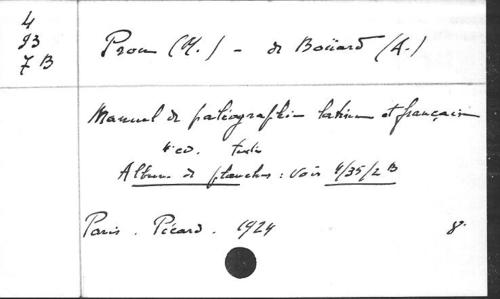 4
93
7 B
Prou (M.) - de Boüard (A.)
Manuel de paléographie latine et française
4e ed. texte
Album de planches : voir 4/35/2 B
Paris. Picard. 1924 8°